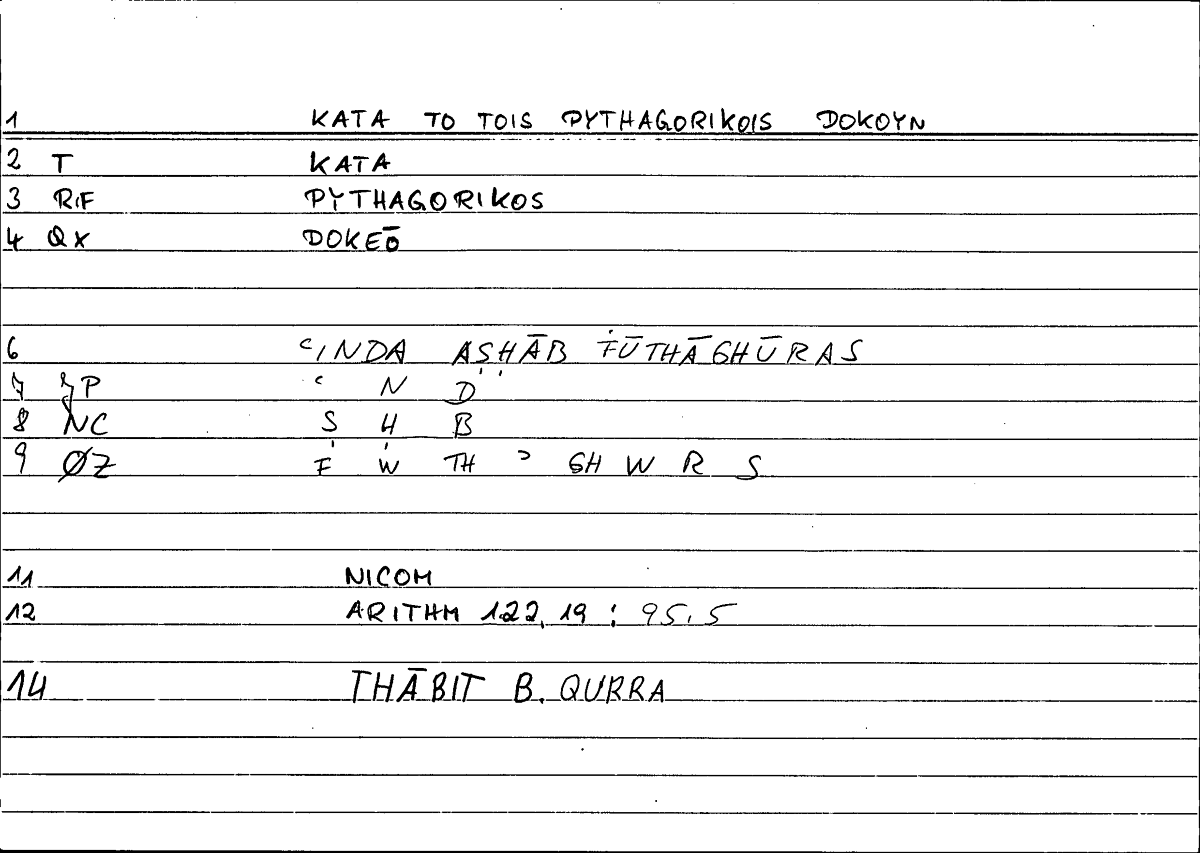 1 KATA TO TOIS PYTHAGORIKOIS DOKOYN
2 T KATA
3 RF PYTHAGORIKOS
4 QX DOKEŌ
6 ʿINDA AṢḤĀB FŪTHĀGHŪRAS
7 P ʿ N D
8 NC Ṣ Ḥ B
9 ØZ F W TH ʾ GH W R S
11 NICOM
12 ARITHM 122, 19 : 95,5
14 THĀBIT B. QURRA